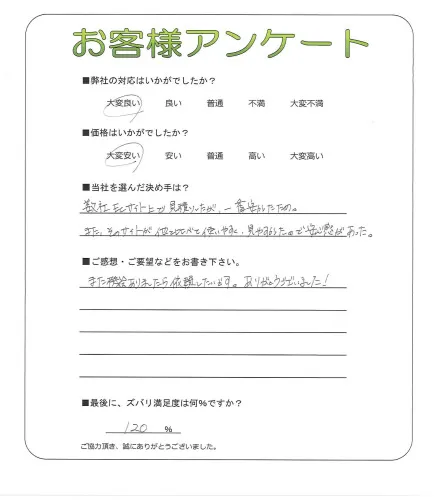 お客様アンケート
■弊社の対応はいかがでしたか？
大変良い 良い 普通 不満 大変不満
■価格はいかがでしたか？
大変安い 安い 普通 高い 大変高い
■当社を選んだ決め手は？
数社ECサイト上で見積りしたが、一番安かったため。
また、そのサイトが他とくらべて使いやすく、見やすかったので安心感があった。
■ご感想・ご要望などをお書き下さい。
また機会ありましたら依頼したいです。ありがとうございました！
■最後に、ズバリ満足度は何％ですか？
120 ％
ご協力頂き、誠にありがとうございました。